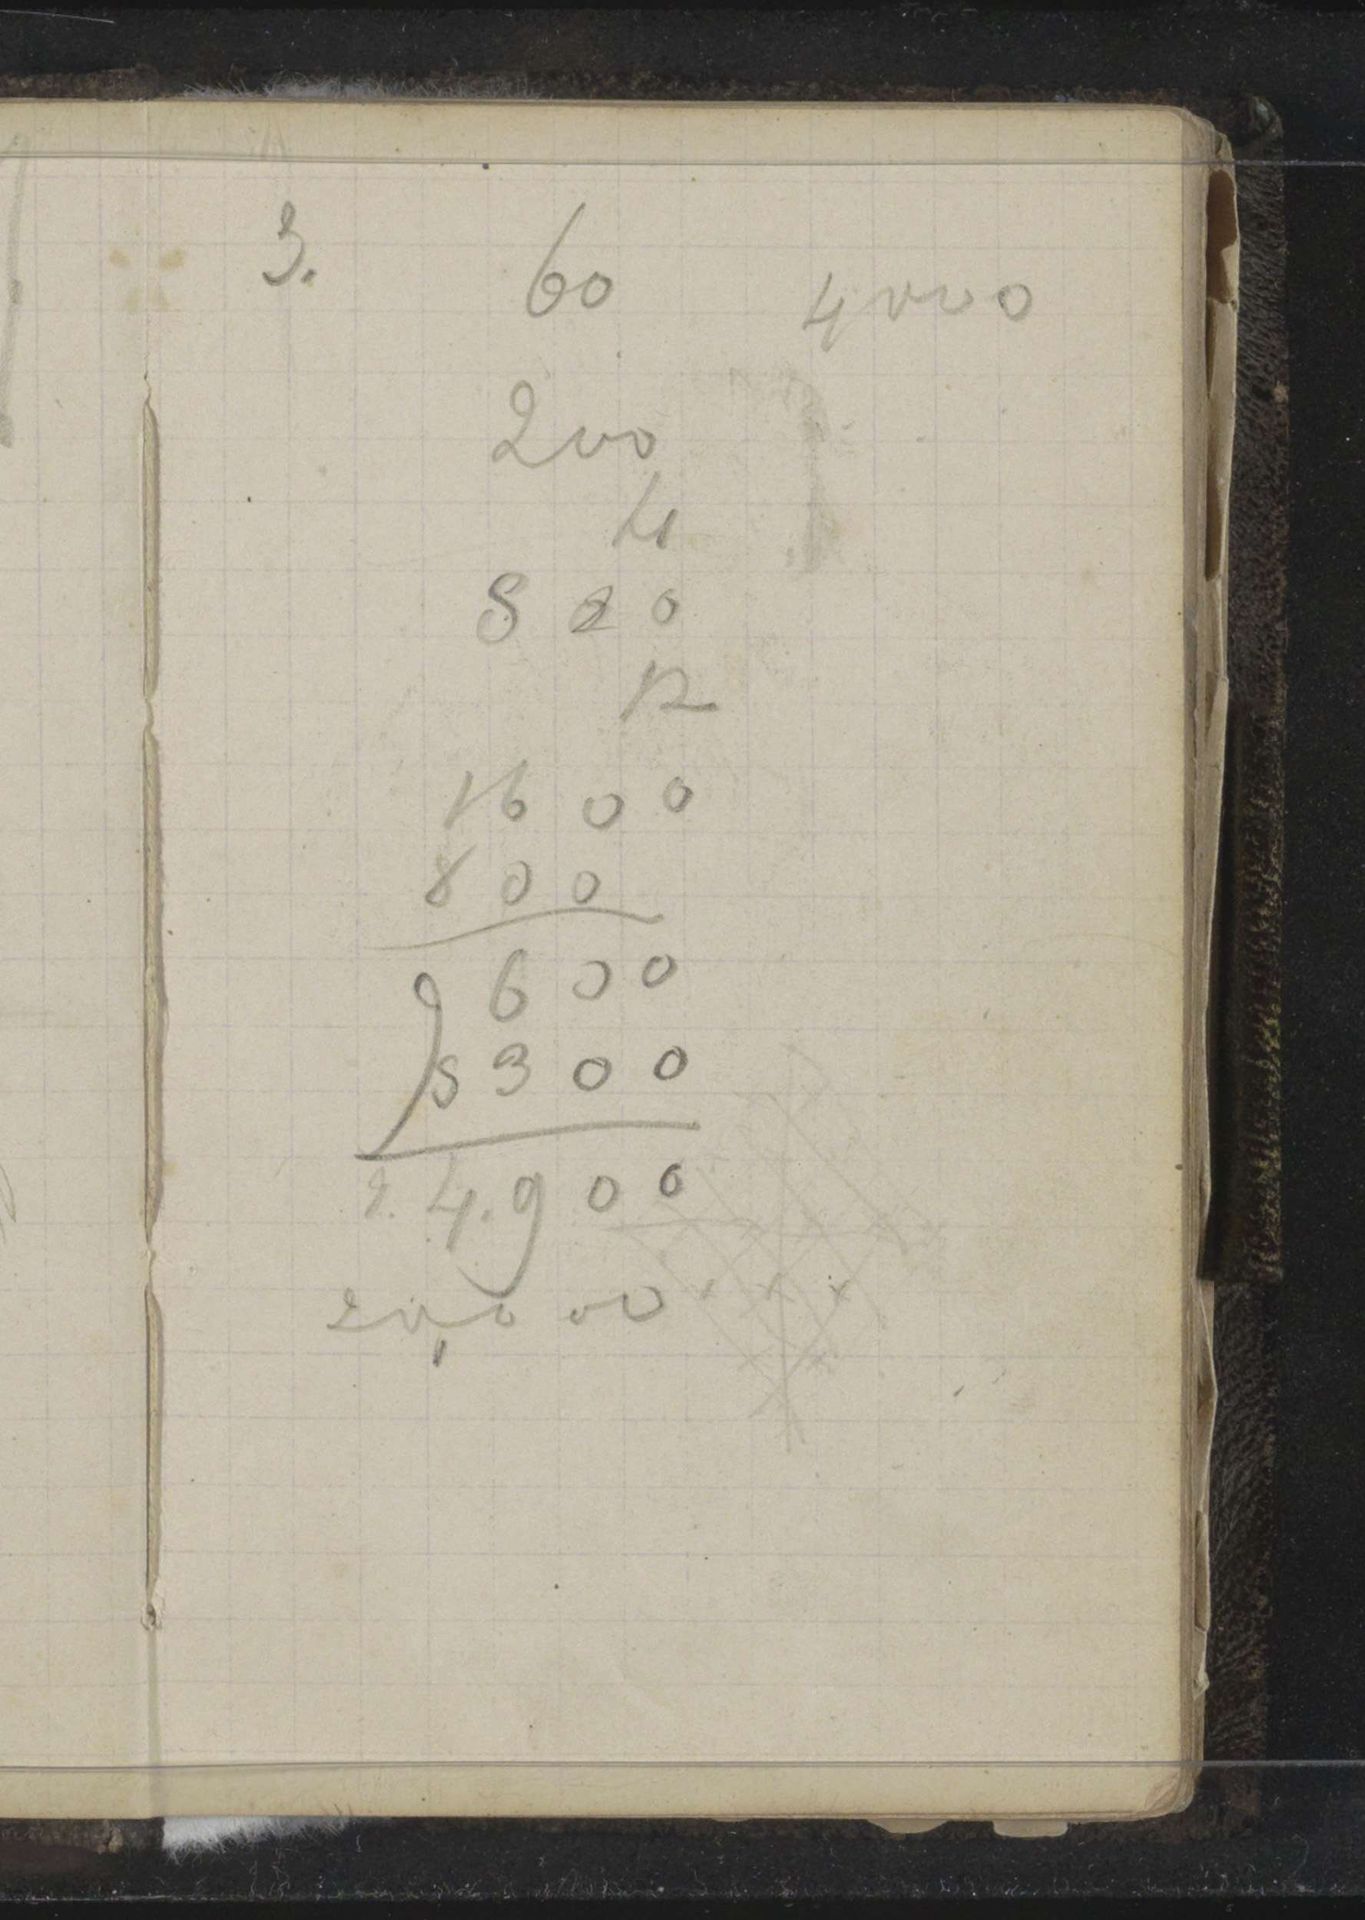 3. 60 4000
200
4
800
12
1600
800
9600
5300
14.900
200000